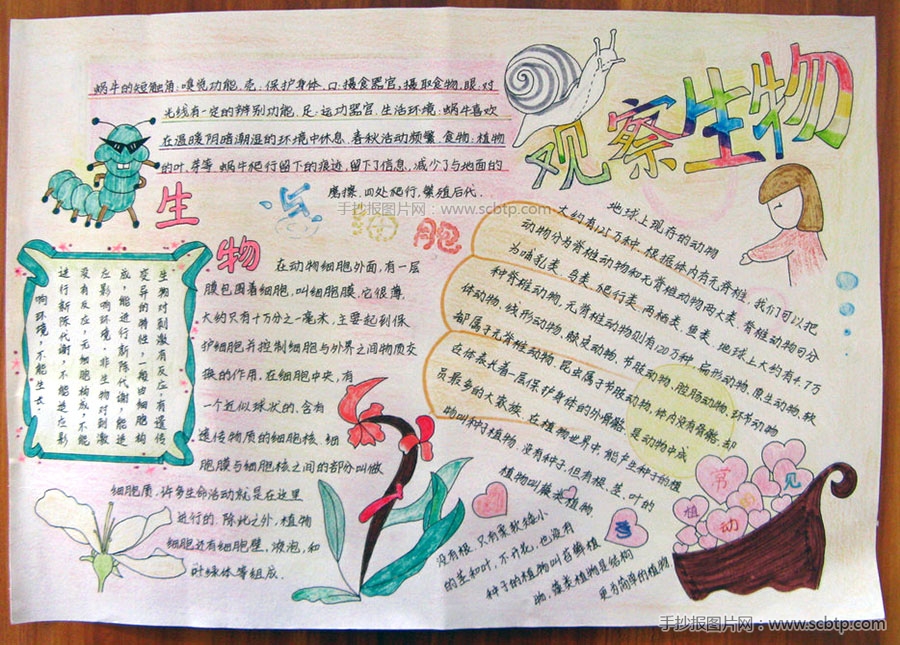 观察生物
蜗牛的短触角:嗅觉功能.壳:保护身体.口:摄食器官,摄取食物.眼:对
光线有一定的辨别功能.足:运动器官.生活环境:蜗牛喜欢
在温暖阴暗潮湿的环境中休息,春秋活动频繁.食物:植物
的叶.芽等.蜗牛爬行留下的痕迹,留下了信息,减少了与地面的
磨擦,四处爬行,繁殖后代.
手抄报图片网:www.scbtp.com
生
物
生物对刺激有反应,有遗传
变异的特性,一般由细胞构
成,能进行新陈代谢,能适
应影响环境,非生物对刺激
没有反应,无细胞构成,不能
进行新陈代谢,不能适应影
响环境,不能生长.
细
胞
在动物细胞外面,有一层
膜包围着细胞,叫细胞膜,它很薄,
大约只有十万分之一毫米,主要起到保
护细胞并控制细胞与外界之间物质交
换的作用,在细胞中央,有
一个近似球状的,含有
遗传物质的细胞核.细
胞膜与细胞核之间的部分叫做
细胞质,许多生命活动就是在这里
进行的.除此之外,植物
细胞还有细胞壁,液泡,和
叶绿体等组成.
地球上现存的动物
大约有125万种,根据体内有无脊椎,我们可以把
动物分为脊椎动物和无脊椎动物两大类.脊椎动物可分
为哺乳类.鸟类.爬行类.两栖类.鱼类.地球上大约有4.7万
种脊椎动物,无脊椎动物则有120万种.扁形动物,原生动物,软
体动物,线形动物,腔肠动物,节肢动物,环节动物
都属于无脊椎动物.昆虫属于节肢动物,体内没有骨骼,却
在体表长着一层保护身体的外骨骼,是动物中成
员最多的大家族.在植物世界中,能产生种子的植
物叫种子植物,没有种子,但有根.茎.叶的
植物叫蕨类植物
没有根,只有柔软矮小
的茎和叶,不开花,也没有
种子的植物叫苔藓植
物,藻类植物是结构
更为简单的植物.
常
见
植
动
手抄报图片网:www.scbtp.com